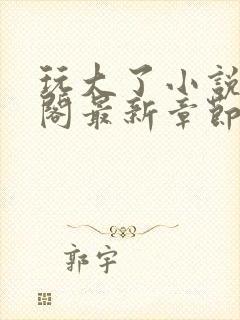 玩大了小說
閣最新章節
郭宇